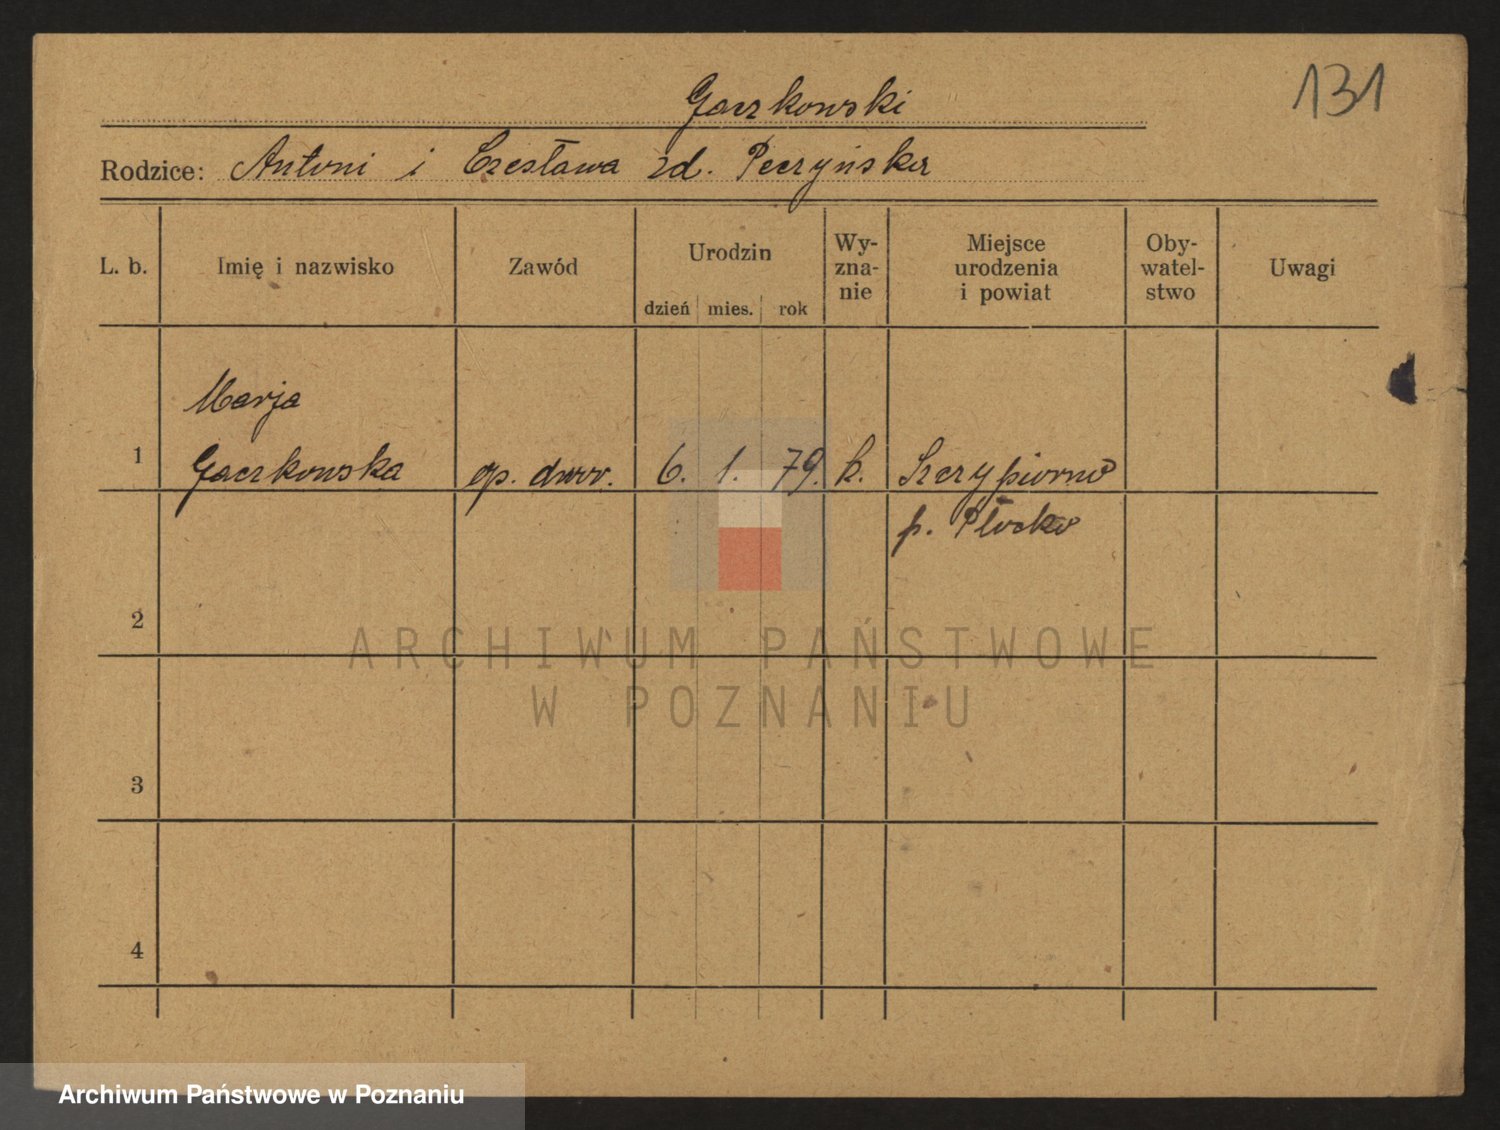 131
Gaczkowski
Rodzice: Antoni i Czesława zd. Peczyńska
L. b. Imię i nazwisko Zawód Urodzin dzień mies. rok Wy-zna-nie Miejsce urodzenia i powiat Oby-watel-stwo Uwagi
Marja
1 Gaczkowska gp. dwor. 6. 1. 79. k. Szczypiorno
p. Płocko
2
ARCHIWUM PAŃSTWOWE
W POZNANIU
3
4
Archiwum Państwowe w Poznaniu